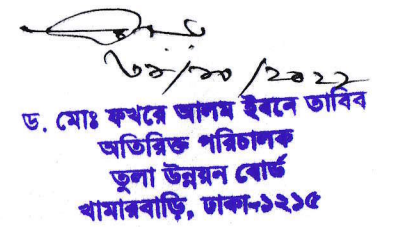 ৩১/১০/২০২২
ড. মোঃ ফখরে আলম ইবনে তাবিব
অতিরিক্ত পরিচালক
তুলা উন্নয়ন বোর্ড
খামারবাড়ি, ঢাকা-১২১৫